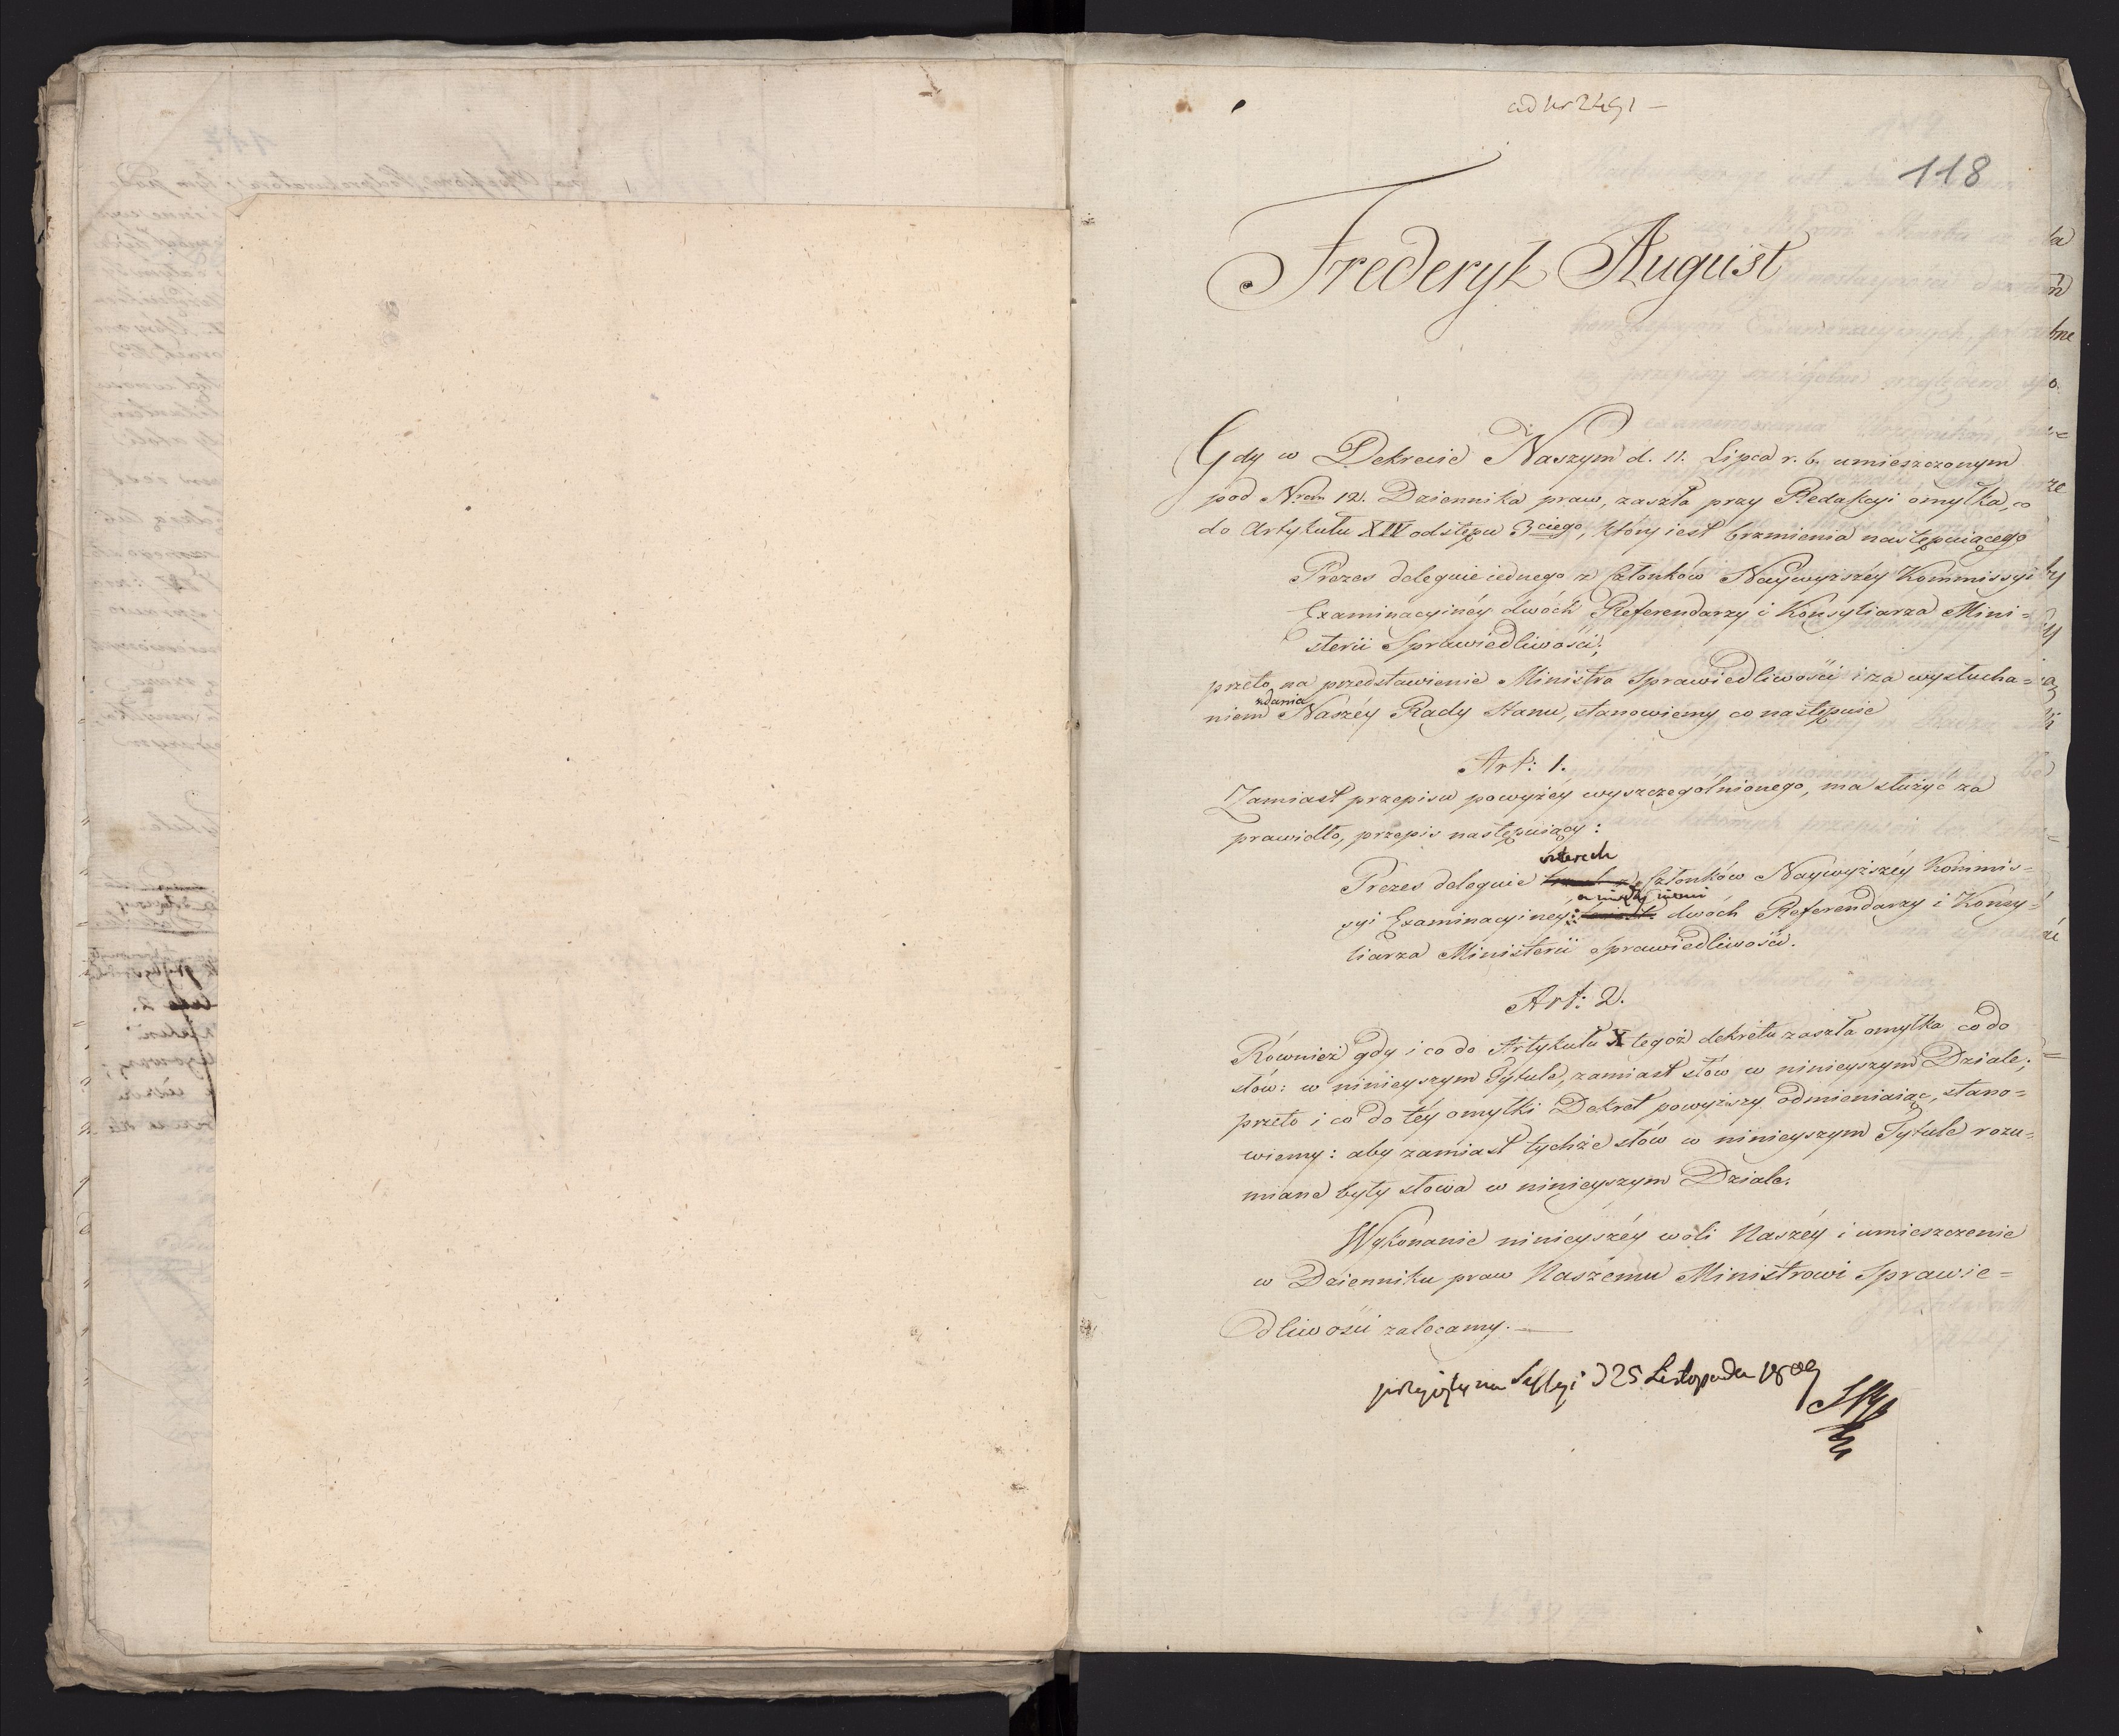 ad Nr 2491 —
118
Fryderyk August
Gdy w Dekrecie Naszym d. 11. Lipca r. b. umieszczonym
pod Nrem 12. Dziennika praw, zaszła przy Redakcyi omyłka, co
do Artykułu XIV odstępu 3ciego, który iest brzmienia następuiącego
Prezes deleguie iednego z Członków Naywyższéy Kommissyi
Examinacyinéy dwóch Referendarzy i Konsyliarza Mini=
sterii Sprawiedliwości;
przeto na przedstawienie Ministra Sprawiedliwości i za wysłucha=
niem zdania Naszéy Rady Stanu, stanowiémy co następuie
Art: 1.
Zamiast przepisu powyżéy wyszczególnionego, ma służyć za
prawidło, przepis następuiący:
czterech
Prezes deleguie Członków Naywyższéy Kommis=
a między niemi
syi Examinacyiney: dwóch Referendarzy i Konsy=
liarza Ministerii Sprawiedliwości.
Art: 2.
Również gdy i co do Artykułu X tegoż dekretu zaszła omyłka co do
słów: w ninieyszym Tytule, zamiast słów w ninieyszym Dziale;
przeto i co do téy omyłki Dekret powyższy odmieniaiąc, stano=
wiemy: aby zamiast tychże słów w ninieyszym Tytule rozu=
miane były słowa w ninieyszym Dziale.
Wykonanie ninieyszéy woli Naszéy i umieszczenie
w Dzienniku praw Naszemu Ministrowi Sprawie=
dliwości zalecamy. —
przyięty na Sessyi d 25 Listopada 1809